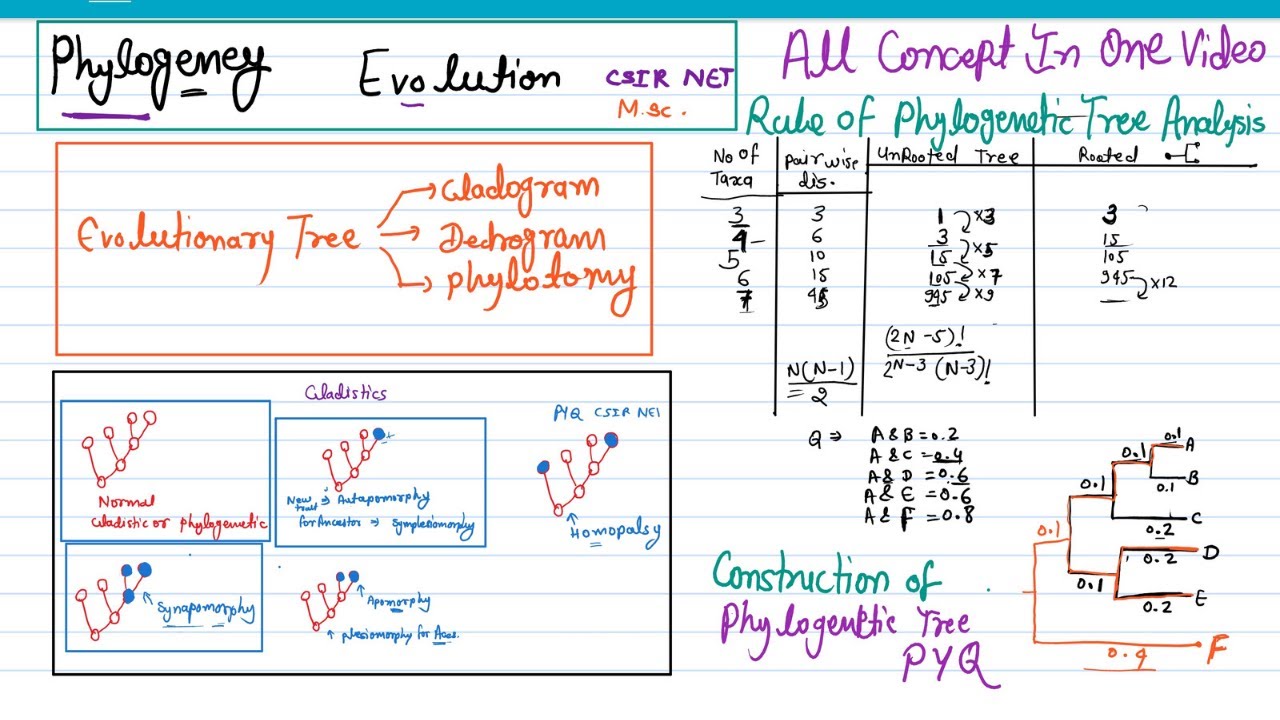 Phylogeney Evolution CSIR NET
M.sc.
All Concept In One Video
Rule of Phylogenetic Tree Analysis
Evolutionary Tree
Cladogram
Dectrogram
phylotomy
No of Taxa | pairwise dis. | UnRooted Tree | Rooted
3 3 1 ×3 3
4 6 3 ×5 15
5 10 15 ×7 105
6 15 105 ×9 945 ×12
7 945
N(N-1)
= 2
(2N-5)!
2N-3 (N-3)!
Cladistics
Normal
Cladistic or phylogenetic
New trait ⇒ Autapomorphy
for Ancestor ⇒ Symplesiomorphy
PYQ CSIR NET
Homopalsy
Synapomorphy
Apomorphy
plesiomorphy for Aces.
Q ⇒ A & B = 0.2
A & C = 0.4
A & D = 0.6
A & E = 0.6
A & F = 0.8
Construction of
Phylogenetic Tree
PYQ
0.1 A
0.1
0.1 B
0.1
C
0.2
0.1
D
0.2
0.1
E
0.2
F
0.4